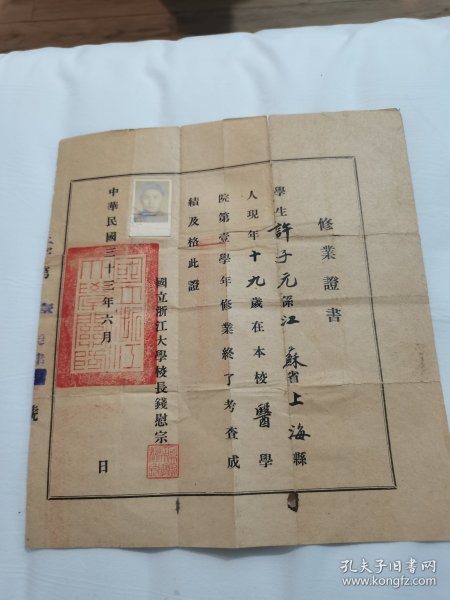 修業證書
學生許子元係江蘇省上海縣
人現年十九歲在本校醫學
院第壹學年修業終了考查成
績及格此證
國立浙江大學校長錢慰宗
中華民國三十三年六月 日
號
孔夫子旧书网
www.kongfz.com